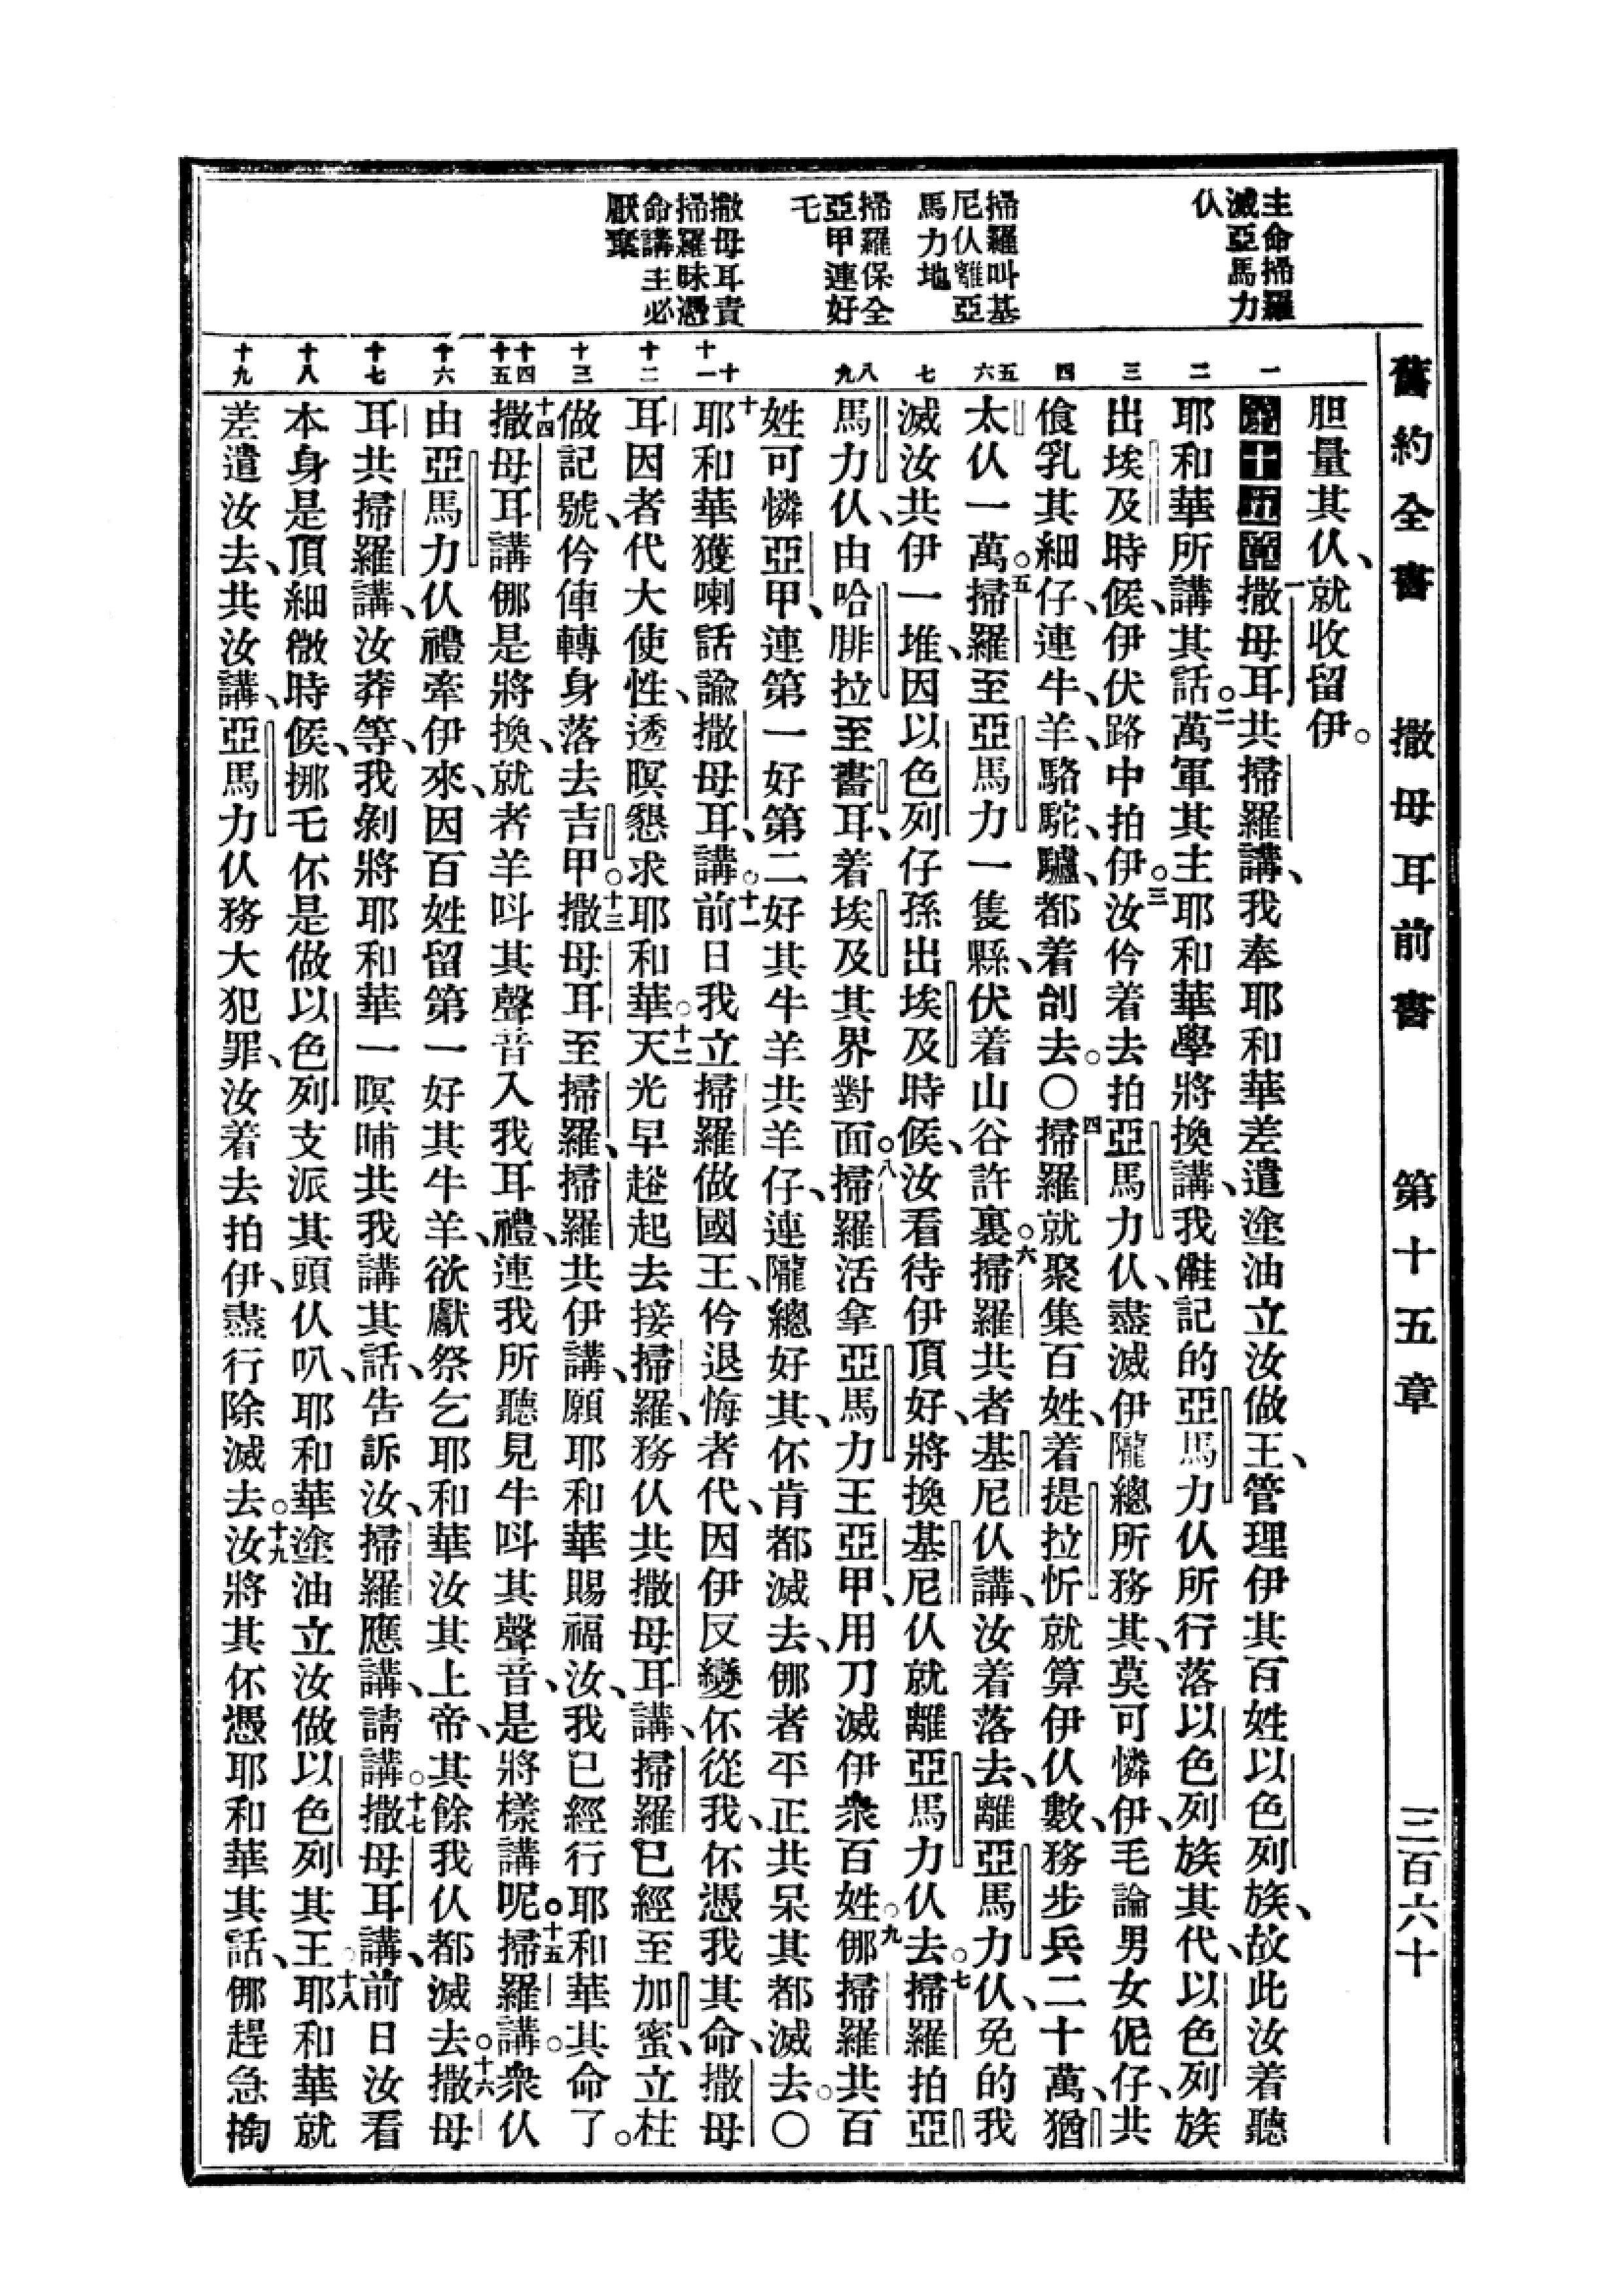 舊約全書　撒母耳前書　第十五章　三百六十
主命掃羅
滅亞馬力
仈
掃羅叫基
尼仈離亞
馬力地
掃羅保全
亞甲連好
乇
撒母耳責
掃羅昧憑
命講主必
厭棄
一
二
三
四
五
六
七
八
九
十
十一
十二
十三
十四
十五
十六
十七
十八
十九
胆量其仈、就收留伊。
第十五章一撒母耳共掃羅講、我奉耶和華差遣塗油立汝做王、管理伊其百姓以色列族、故此汝着聽
耶和華所講其話。二萬軍其主耶和華學將換講、我儺記的亞馬力仈所行落以色列族其代、以色列族
出埃及時候、伊伏路中拍伊。三汝仱着去拍亞馬力仈、盡滅伊隴總所務其、莫可憐伊、毛論男女伲仔、共
飡乳其細仔、連牛、羊、駱駝、驢、都着刣去。〇四掃羅就聚集百姓、着提拉忻就算伊仈數、務步兵二十萬、猶
太仈一萬。五掃羅至亞馬力一隻縣、伏着山谷許裏。六掃羅共者基尼仈講、汝着落去、離亞馬力仈、免的我
滅汝共伊一堆、因以色列仔孫出埃及時候、汝看待伊頂好、將換基尼仈就離亞馬力仈去。七掃羅拍亞
馬力仈、由哈腓拉至書耳、着埃及其界對面。八掃羅活拿亞馬力王亞甲、用刀滅伊衆百姓。九㑚掃羅共百
姓可憐亞甲、連第一好第二好其牛羊共羊仔、連隴總好其、伓肯都滅去、㑚者平正共呆其都滅去。〇
十耶和華獲喇話諭撒母耳、講。十一前日我立掃羅做國王、仱退悔者代、因伊反變伓從我、伓憑我其命、撒母
耳因者代大使性、透暝懇求耶和華。十二天光早趖起去接掃羅、務仈共撒母耳講、掃羅已經至加蜜、立柱
做記號、仱俥轉身落去吉甲。十三撒母耳至掃羅、掃羅共伊講、願耶和華賜福汝、我已經行耶和華其命了。
十四撒母耳講㑚是將換、就者羊呌其聲音入我耳禮、連我所聽見牛呌其聲音、是將樣講呢。十五掃羅講。衆仈
由亞馬力仈禮牽伊來、因百姓留第一好其牛羊、欲獻祭乞耶和華汝其上帝、其餘我仈都滅去。十六撒母
耳共掃羅講、汝莽等、我剝將耶和華一暝晡共我講其話、告訴汝、掃羅應講、請講。十七撒母耳講、前日汝看
本身是頂細微時候、挪乇伓是做以色列支派其頭仈叭、耶和華塗油立汝做以色列其王。十八耶和華就
差遣汝去、共汝講、亞馬力仈務大犯罪、汝着去拍伊、盡行除滅去。十九汝將其伓憑耶和華其話、㑚趕急掏